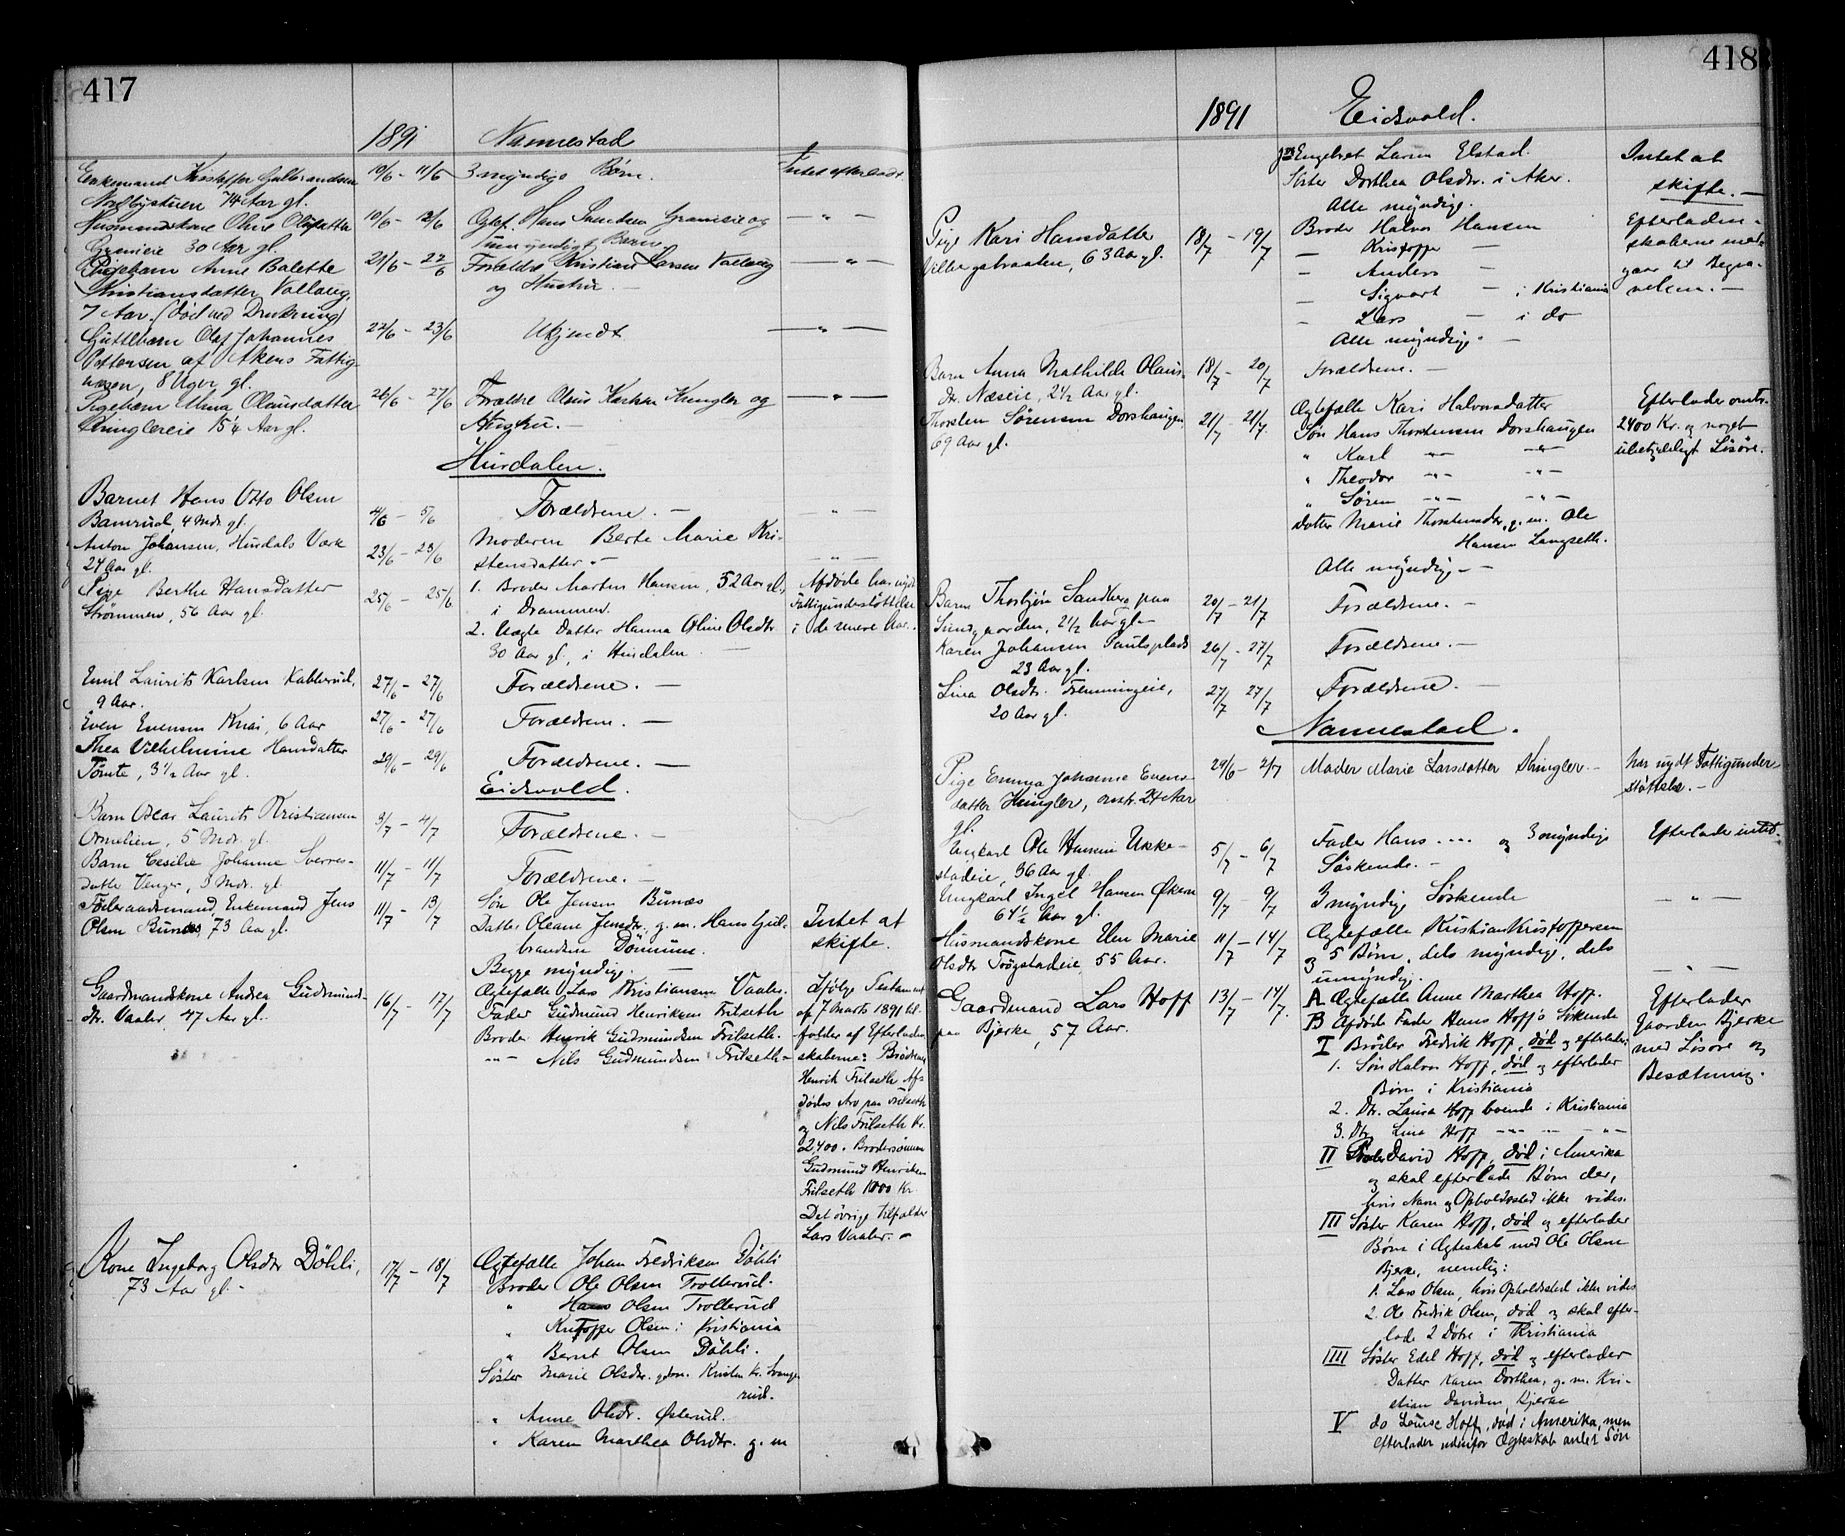 417
1891 Nannestad
Enkemand Kristoffer Gulbrandsen 10/6 - 11/6 3 myndige Børn. Intet efterladt.
Nordbystuen 74 Aar gl.
Husmandskone Oline Olsdatter 10/6 - 12/6 Ægtef. Hans Granieie og — " —
30 Aar gl. umyndigt Barn.
Pigebarn Anne Bolette 21/6 - 22/6 Forældre Kristian Larsen Vollaug — " —
Kristiansdatter Vollaug, og Hustru. —
7 Aar. (død ved Drukning)
Guttebarn Olaf Johannes 22/6 - 23/6 Ukjendt — " —
Pettersen af Akers Fattig-
væsen, 8 Uger gl.
Pigebarn Olausdatter 26/6 - 27/6 Forældre Olaus og — " —
15/4 Aar gl. Hustru. —
Hurdalen.
Barnet Hans Otto Olsen 4/6 - 5/6 Forældrene. — — " —
Bamrud, 4 Mdr. gl.
Anton Johansen, Hurdals Værk 23/6 - 23/6 Moderen Berte Marie Kri-
24 Aar gl. stensdatter. — — " —
Pige Berthe Hansdatter 25/6 - 25/6 1. Broder Morten Hansen, 52 Aar gl., Afdøde har nydt
Strømmen, 56 Aar gl. i Drammen. Fattigunderstøttelse
2. Uægte Datter Hanna Oline Olsdtr i de senere Aar. —
30 Aar gl., i Hurdalen. —
Emil Laurits Karlsen Kabberud, 27/6 - 27/6 Forældrene. —
9 Aar.
Even Evensen Knai, 6 Aar 27/6 - 27/6 Forældrene. —
Thea Vilhelmine Hansdatter 29/6 - 29/6 Forældrene. —
Tømte, 3 1/2 Aar gl.
Eidsvold.
Barn Oscar Laurits Kristiansen 3/7 - 4/7 Forældrene. —
Ormelien, 5 Mdr. gl.
Barn Cesilie Johanne Sverres- 11/7 - 11/7 Forældrene. —
datter Venger, 3 Mdr. gl.
Føderaadsmand, Enkemand Jens 11/7 - 13/7 Søn Ole Jensen Bunæs Intet at
Olsen Bunæs, 73 Aar gl. Datter Oleane Jensdtr., g. m. Hans Gul- skifte.
brandsen Dönnum.
Begge myndige. —
Gaardmandskone Andrea Gudmunds- 16/7 - 17/7 Ægtefælle Lars Kristiansen Vaaler. Ifølge Testament
dtr. Vaaler, 47 Aar gl. Fader Gudmund Henriksen Frilseth af 7 Marts 1891 til-
Broder Henrik Gudmundsen Frilseth. falder af Efterladen-
" — Nils Gudmundsen Frilseth — skaberne: Brødrene
Henrik Frilseth Af-
dødes Arv paa Frilseth
og Nils Frilseth Kr.
2,400. Brodersønnen
Gudmund Henriksen
Frilseth 1000 Kr
Det øvrige tilfalder
Lars Vaaler. —
Kone Ingeborg Olsdtr Döhli, 17/7 - 18/7 Ægtefælle Johan Fredriksen Döhli
73 Aar gl. — Broder Ole Olsen Trollerud.
" Hans Olsen Trollerud
" Kristoffer Olsen i Kristiania
" Bernt Olsen Döhli.
Søster Marie Olsdtr.
rud.
" Anne Olsdtr. Østerud.
" Karen Marthea Olsdtr. g. m
418
1891 Eidsvold.
Engebret Larsen Elstad. Intet at
Søster Dorthea Olsdtr. i Aker. skifte. —
Alle myndige.
Pige Kari Hansdatter 18/7 - 19/7 Broder Halvor Hansen Efterladen-
63 Aar gl. — Kristoffer — skaberne med-
— Anders — gaar til Begra-
— Sigvart — i Kristiania velsen. —
— Lars — i do
Alle myndige. —
Barn Anna Mathilde Olaus- 18/7 - 20/7 Forældrene. —
dtr. Næseie, 2 1/2 Aar gl.
Thorsten Sørensen Dorshaugen 21/7 - 21/7. Ægtefælle Kari Halvorsdatter Efterlader omtr.
69 Aar gl. Søn Hans Thorstensen Dorshaugen 2400 Kr. og noget
" Karl — " — — " — ubetydeligt Løsøre.
" Theodor — " — — " —
" Søren — " — — " —
Datter Marie Thorstensdtr., g. m. Ole
Hansen Langseth.
Alle myndige. —
Barn Thorbjørn Sandberg paa 20/7 - 21/7 Forældrene. —
Sundgaarden, 2 1/2 Aar gl. —
Karen Johansen 26/7 - 27/7 Forældrene. —
23 Aar gl.
Lina Olsdtr. Flemmingeie, 27/7 - 27/7 Forældrene. —
20 Aar gl.
Nannestad.
Pige Emma Johanne Evens- 29/6 - 2/7 Moder Marie Larsdatter Kringler. — har nydt Fattigunder-
datter Kringler, omtr. 24 Aar støttelse. —
gl.
Ungkarl Ole Hansen Ukke- 5/7 - 6/7 Fader Hans .... og 3 myndige Efterlader intet.
stadeie, 36 Aar gl. Søskende. —
Ungkarl Ingel Hansen Økern 9/7 - 9/7 3 myndige Søskende — " —
64 1/2 Aar gl.
Husmandskone Marie 11/7 - 14/7 Ægtefælle Kristian Kristoffersen
Olsdtr Trøgstadeie, 55 Aar. og 5 Børn, dels myndige, dels — " —
umyndig.
Gaardmand Lars Hoff 13/7 - 14/7. A Ægtefælle Anne Marthea Hoff. Efterlader
paa Bjerke, 57 Aar. B Afdøde Fader Hans Hoff's Søskende Gaarden Bjerke
I Broder Fredrik Hoff, død og efterlader: med Løsøre og
1. Søn Halvor Hoff, død og efterlader Besætning.
Børn i Kristiania
2. Dtr. Laura Hoff boende i Kristiania
3. Dtr Lina Hoff — " — — " —
II Broder David Hoff, død i Amerika
og skal efterlade Børn der,
hvis Navn og Opholdssted ikke vides.
III Søster Karen Hoff, død og efterlader
Børn i Ægteskab med Ole Olsen
Bjerke, nemlig:
1. Lars Olsen, hvis Opholdssted ikke vides
2. Ole Fredrik Olsen, død og skal efter-
lade 2 Døtre i Kristiania
IIII Søster Edel Hoff, død og efterlader
Datter Karen Dorthea, g. m. Kri-
stian Davidsen, Bjerke
V do Louise Hoff, død i Amerika, men
efterlader udenfor Ægteskab avlet Søn